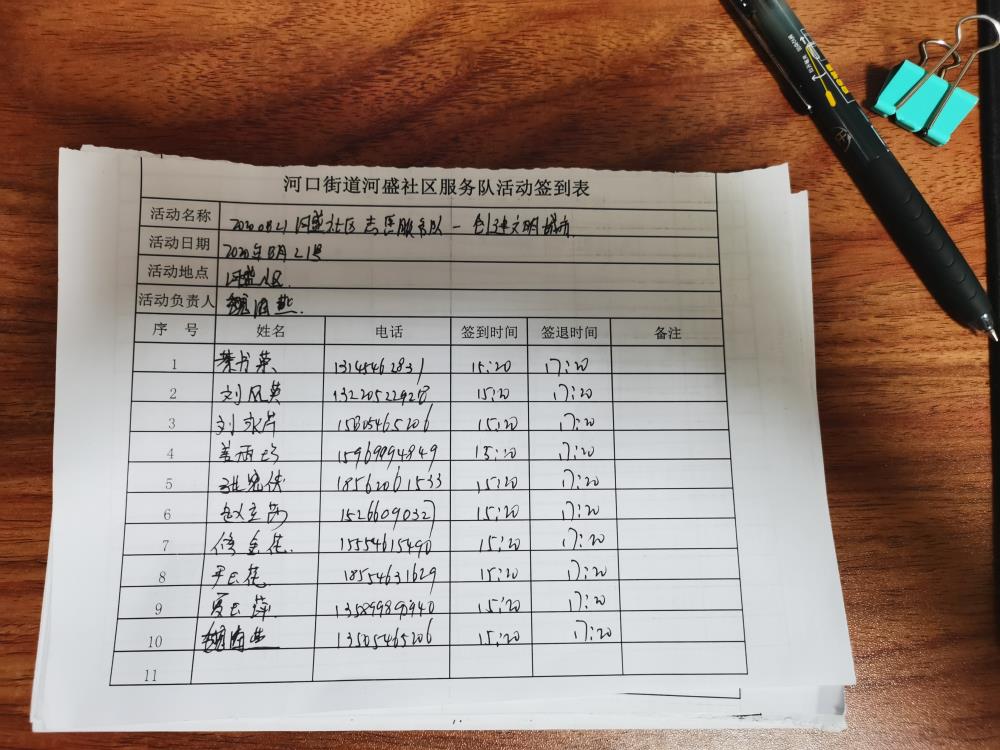 河口街道河盛社区服务队活动签到表
活动名称 20200821 河盛社区志愿服务队 — 创建文明城市.
活动日期 2020年8月21号
活动地点 河盛
活动负责人 魏海燕.
序 号 姓名 电话 签到时间 签退时间 备注
1 13145462831 15:20 17:20
2 刘风英 13220522928 15:20 17:20
3 刘永芹 15805465206 15:20 17:20
4 15969994849 15:20 17:20
5 18562061533 15:20 17:20
6 15266090327 15:20 17:20
7 15554615490 15:20 17:20
8 18554631629 15:20 17:20
9 13589989940 15:20 17:20
10 魏海燕 13505465206 15:20 17:20
11